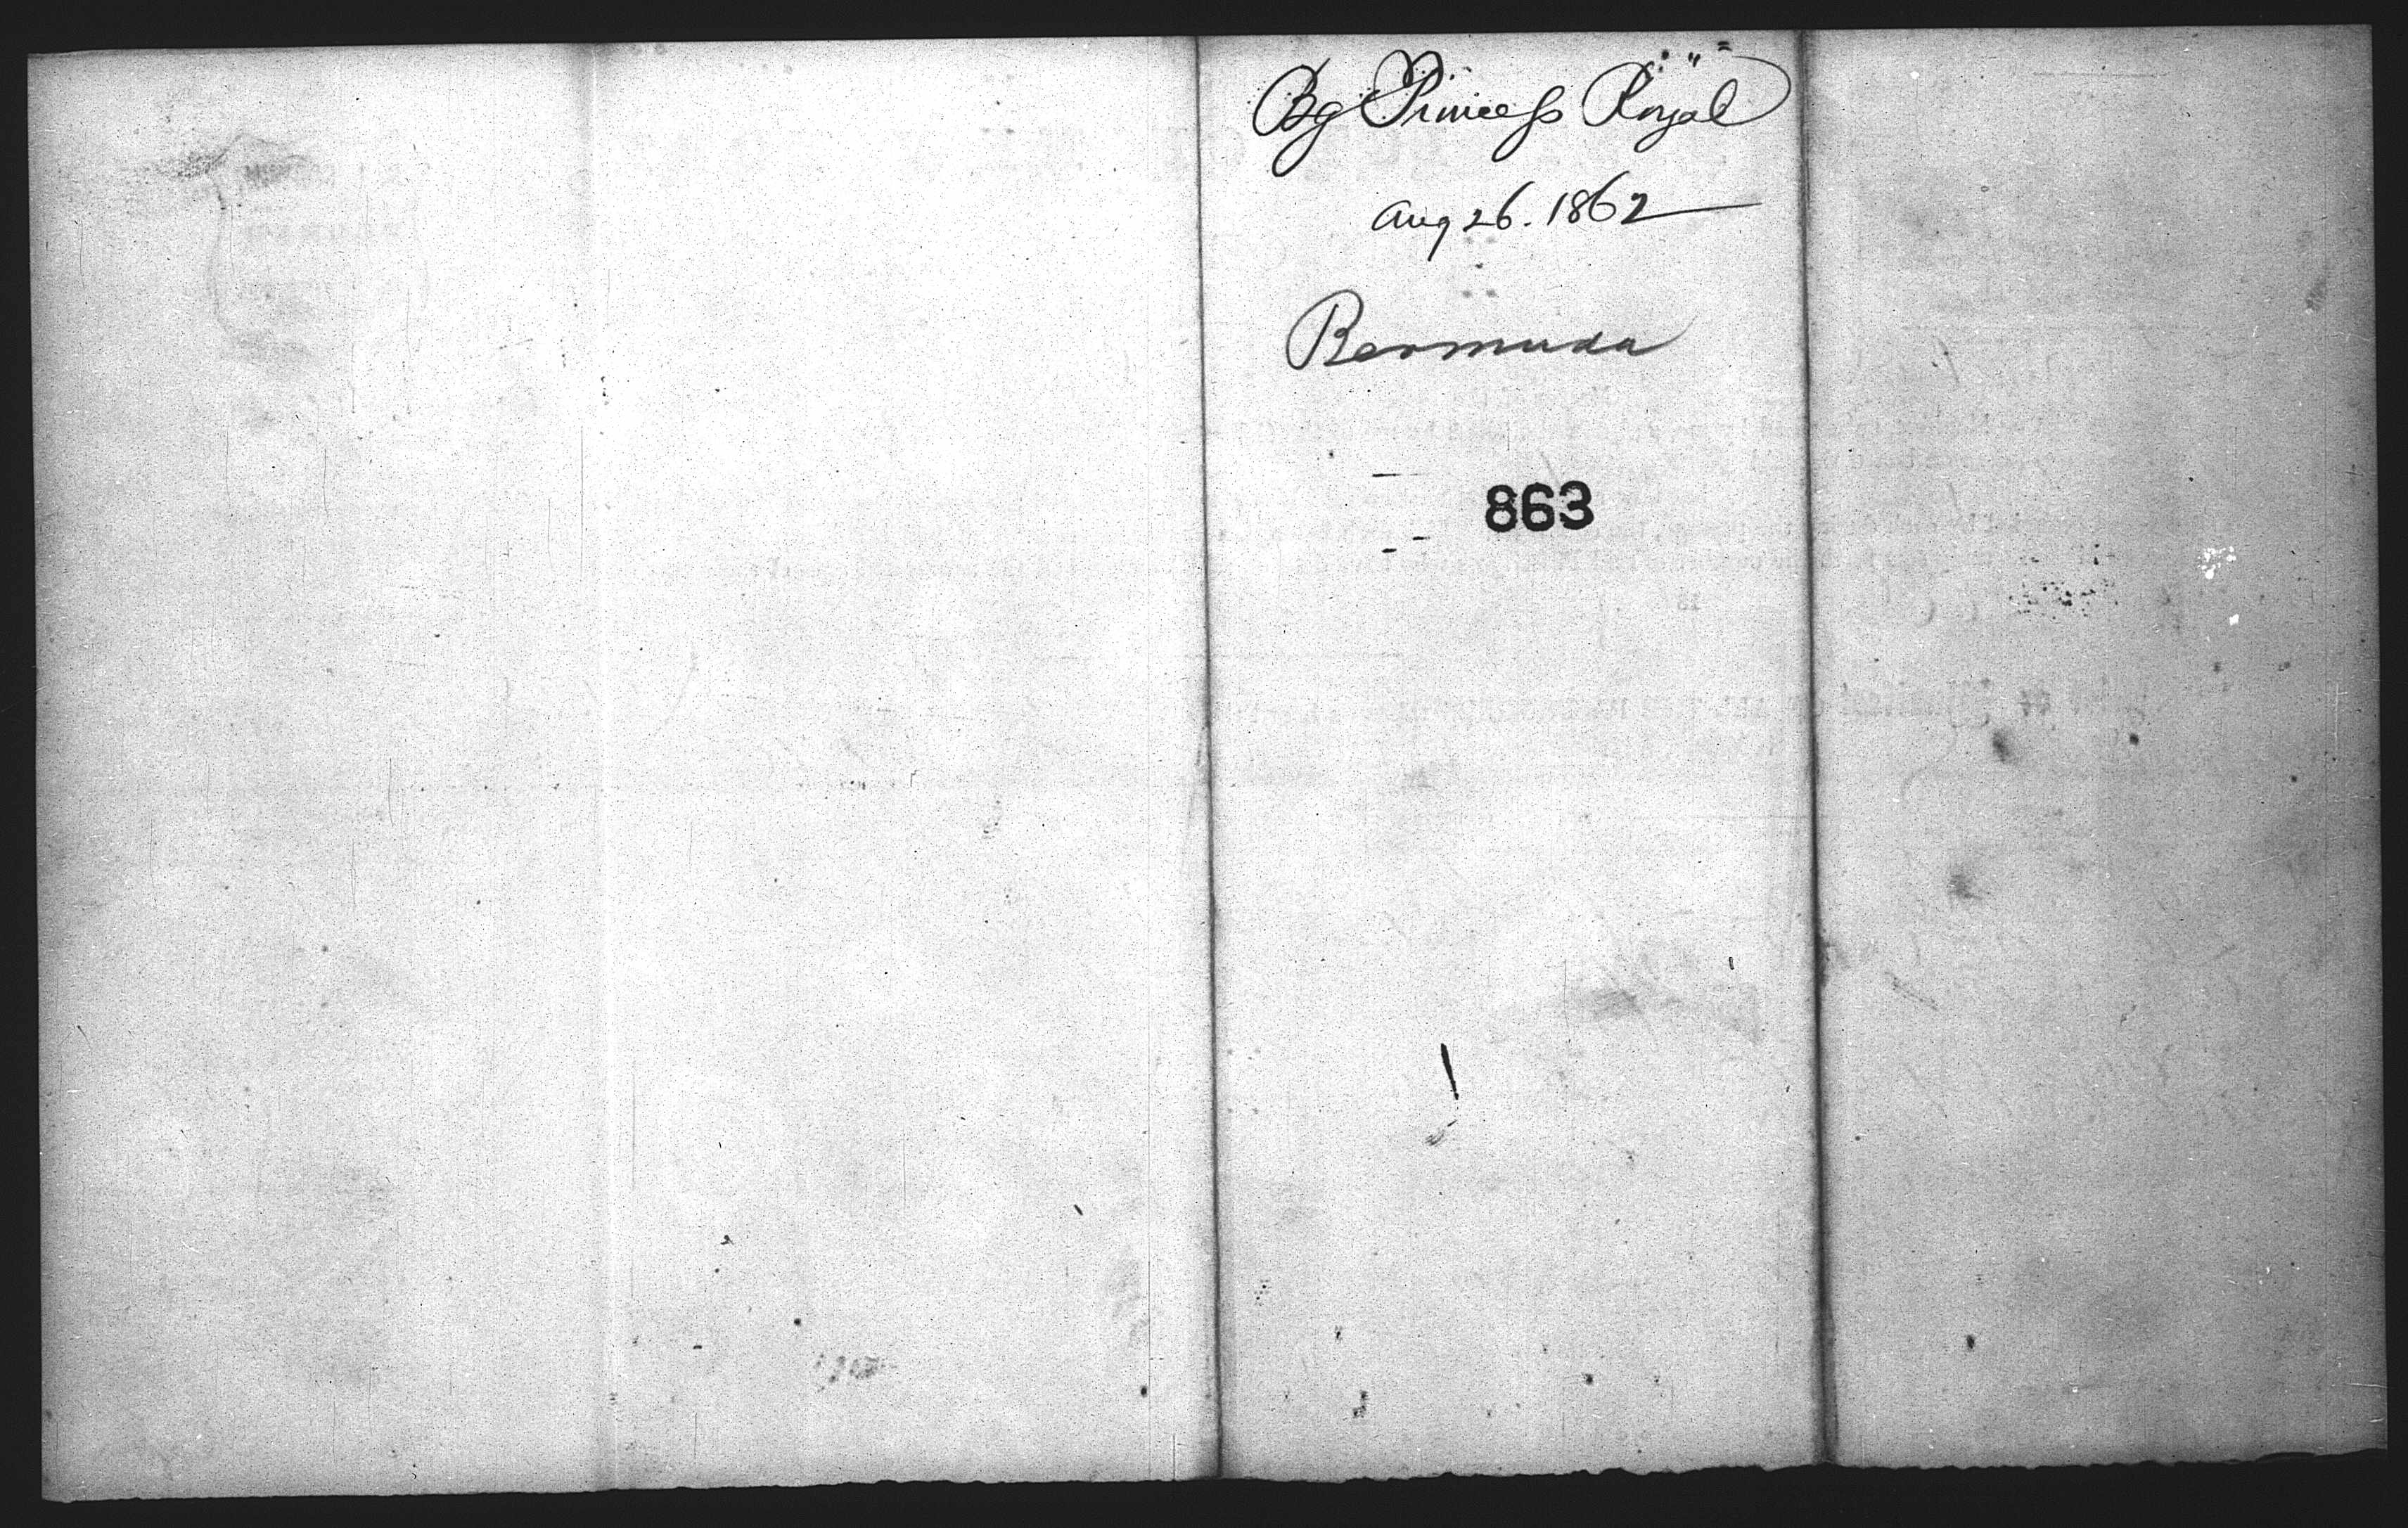 Bg Princess Royal
Aug 26. 1862
Bermuda
863